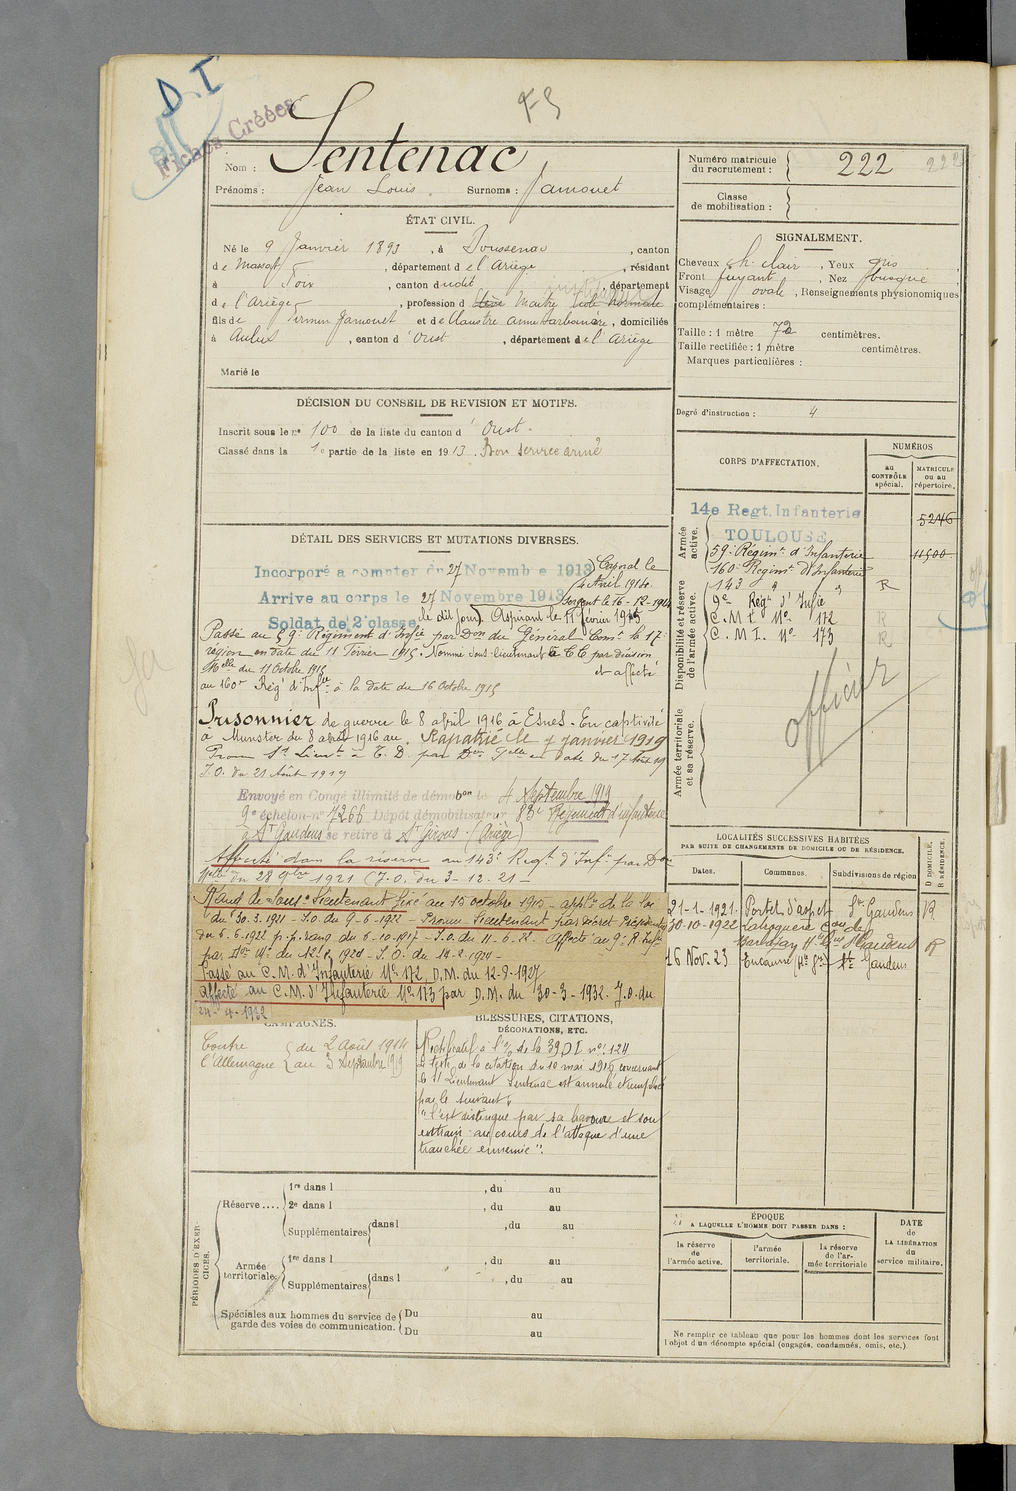 D. I
Fiches Créées
F5
Nom : Sentenac
Prénoms : Jean Louis. Surnoms : Jamouet
Numéro matricule du recrutement : 222
222
Classe de mobilisation :
ÉTAT CIVIL.
Né le 9 Janvier 1893, à Soussenac, canton
de Massat, département de l'Ariège, résidant
à Foix, canton dudit, département
de l'Ariège, profession d Maître école normale
fils de Firmin Jamouet et de Claustre Anne Barbonère, domiciliés
à Aulus, canton d'Oust, département de l'Ariège
Marié le
SIGNALEMENT.
Cheveux ch. clair, Yeux gris
Front fuyant, Nez busqué
Visage ovale, Renseignements physionomiques
complémentaires :
Taille : 1 mètre 72 centimètres.
Taille rectifiée : 1 mètre centimètres.
Marques particulières :
Degré d'instruction : 4
DÉCISION DU CONSEIL DE REVISION ET MOTIFS.
Inscrit sous le n° 100 de la liste du canton d'Oust.
Classé dans la 1e partie de la liste en 1913. Bon service armé
CORPS D'AFFECTATION.
NUMÉROS
au CONTRÔLE spécial.
MATRICULE ou au répertoire.
Armée active.
14e Regt. Infanterie
TOULOUSE
5246
59e Régimt d'Infanterie
11500
160e Régimt d'Infanterie
Disponibilité et réserve de l'armée active.
143 " " R
9e Regt d'Infie
C. M. I. No. 172 R
C. M. I. No. 173 R
officier
Armée territoriale et sa réserve.
DÉTAIL DES SERVICES ET MUTATIONS DIVERSES.
Incorporé a compter du 27 Novembre 1913 Caporal le
4 Avril 1914.
Arrive au corps le 27 Novembre 1913 Sergent le 16-12-1914
Soldat de 2e classe le dit jour. Aspirant le 11 février 1915
Passé au 59e Régiment d'Infie par Don du Général Comt la 17e
région en date du 11 Février 1915. Nommé sous-lieutenant à T.T. par décision
Mlle du 11 Octobre 1915 et affecté
au 160e Régt d'Infie à la date du 16 Octobre 1915
Prisonnier de guerre le 8 april 1916 à Esnes. En captivité
à Munster du 8 avril 1916 au. Rapatrié le 7 janvier 1919
Promu St Lieut à T. D. par Don Plle en date du 17 Août 19
J.O. du 21 Août 1919
Envoyé en Congé illimité de démobon le 4 Septembre 1919
9e échelon n° 7266 Dépôt démobilisateur 83e Régiment d'infanterie
à St Gaudens se retire à St Girons. (Ariège)
Affecté dans la réserve au 143e Regt d'Infie par Don
Mlle du 28 9bre 1921 (J.O. du 3-12-21 -
Rang de Sous-Lieutenant fixé au 15 octobre 1915 - applon de la loi
du 30.3.1921 - J.O. du 9-6-1922 - Promu Lieutenant par décret Présidentiel
du 6.6.1922 p.p. rang du 6-10-1917 - J.O. du 11-6-22. Affecté au 9e R. Infie
Passé au C.M. d'Infanterie No 172, D.M. du 12-8-1927
affecté au C.M. d'Infanterie No 173 par D.M. du 30-3-1932. J.O. du
24-4-1932
LOCALITÉS SUCCESSIVES HABITÉES
PAR SUITE DE CHANGEMENTS DE DOMICILE OU DE RÉSIDENCE.
Dates. Communes. Subdivisions de région
D DOMICILE, R RÉSIDENCE.
21-1-1921. Portet d'aspet St. Gaudens R
30-10-1922
16 Nov. 23 Encausse (Hte Gne) St Gaudens R
CAMPAGNES.
Contre l'Allemagne { du 2 Août 1914
au 3 Septembre 1919
BLESSURES, CITATIONS,
DÉCORATIONS, ETC.
Rectificatif à l'O/ de la 39 D I no 124
Le texte de la citation du 10 mai 1916 concernant
le St Lieutenant Sentenac est annulé et remplacé
par le suivant,
"s'est distingué par sa bravoure et son
entrain au cours de l'attaque d'une
tranchée ennemie".
PÉRIODES D'EXERCICES.
Réserve ....
1re dans l , du au
2e dans l , du au
Supplémentaires dans l , du au
Armée territoriale.
1re dans l , du au
Supplémentaires dans l , du au
Spéciales aux hommes du service de garde des voies de communication.
Du au
Du au
ÉPOQUE
A LAQUELLE L'HOMME DOIT PASSER DANS :
la réserve de l'armée active.
l'armée territoriale.
la réserve de l'armée territoriale
DATE DE LA LIBÉRATION du service militaire.
Ne remplir ce tableau que pour les hommes dont les services font
l'objet d'un décompte spécial (engagés, condamnés, omis, etc.).